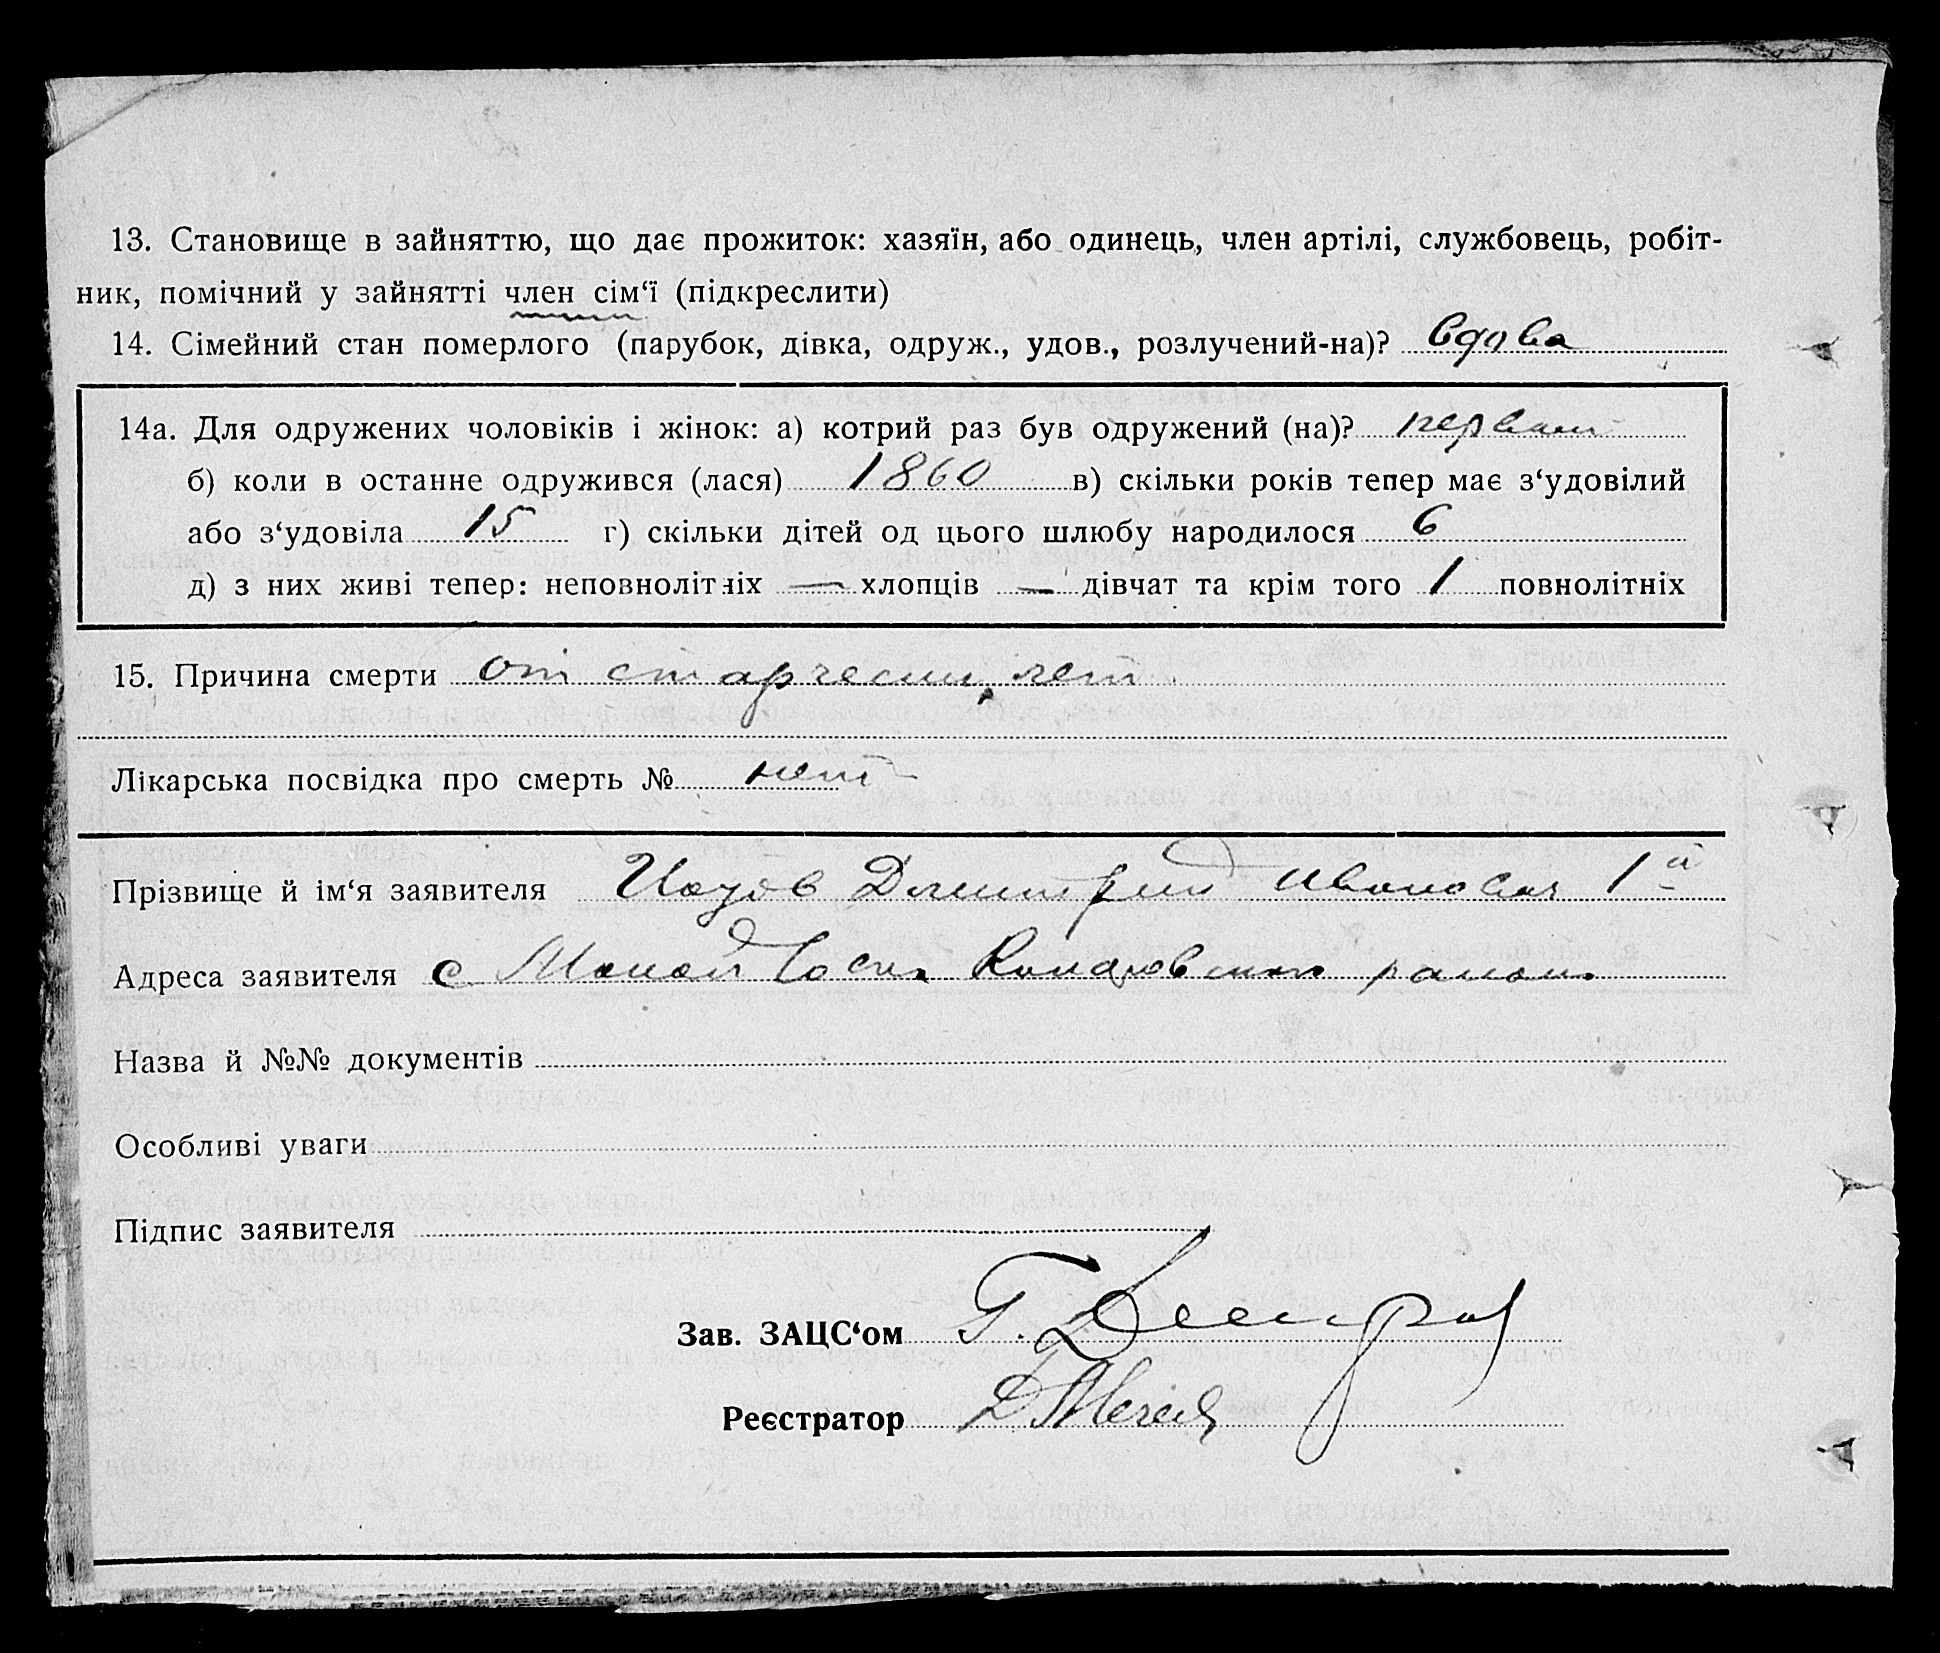 13. Становище в зайняттю, що дає прожиток: хазяїн, або одинець, член артілі, службовець, робіт-
ник, помічний у зайнятті член сім‘ї (підкреслити)
14. Сімейний стан померлого (парубок, дівка, одруж., удов., розлучений-на)? вдова
14а. Для одружених чоловіків і жінок: а) котрий раз був одружений (на)? первый
б) коли в останнє одружився (лася) 1860 в) скільки років тепер має з‘удовілий
або з‘удовіла 15 г) скільки дітей од цього шлюбу народилося 6
д) з них живі тепер: неповнолітніх — хлопців — дівчат та крім того 1 повнолітніх
15. Причина смерти от старческих лет
Лікарська посвідка про смерть № нет
Прізвище й ім‘я заявителя Дмитрий Иванович 1й
Адреса заявителя с района
Назва й №№ документів
Особливі уваги
Підпис заявителя
Зав. ЗАЦС‘ом
Реєстратор